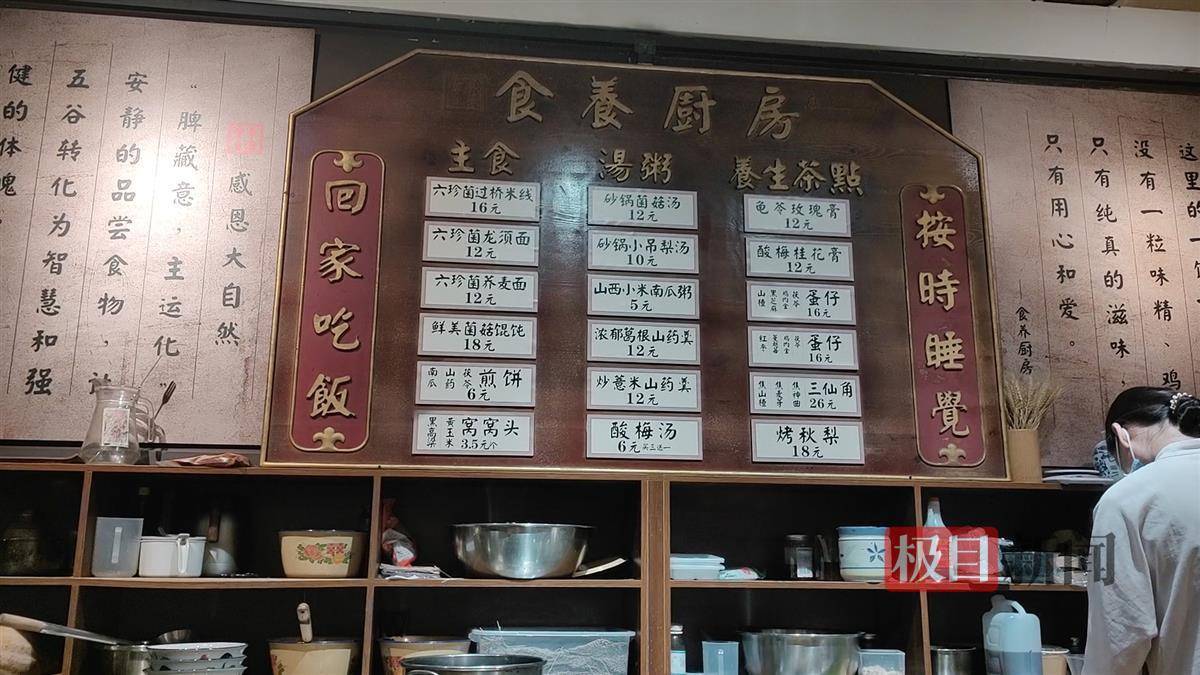 食養厨房
回家吃飯
按時睡覺
主食
六珍菌过桥米线
16元
六珍菌龙须面
12元
六珍菌荞麦面
12元
鲜美菌菇馄饨
18元
南瓜 山药 茯苓 煎饼
6元
黑高粱 黄玉米 窝窝头
3.5元/个
湯粥
砂锅菌菇汤
12元
砂锅小吊梨汤
10元
山西小米南瓜粥
5元
浓郁葛根山药羹
12元
炒薏米山药羹
12元
酸梅汤
6元 买三送一
養生茶點
龟苓玫瑰膏
12元
酸梅桂花膏
12元
山楂 黑芝麻 鸡内金 茯苓 蛋仔
16元
红枣 鸡内金 茯苓 蛋仔
16元
焦山楂 焦麦芽 焦神曲 三仙角
26元
烤秋梨
18元
感恩大自然
“脾藏意，主运化”
安静的品尝食物，
五谷转化为智慧和强
健的体魄
这里的一
没有一粒味精、鸡
只有纯真的滋味
只有用心和爱。
食养厨房
极目新闻